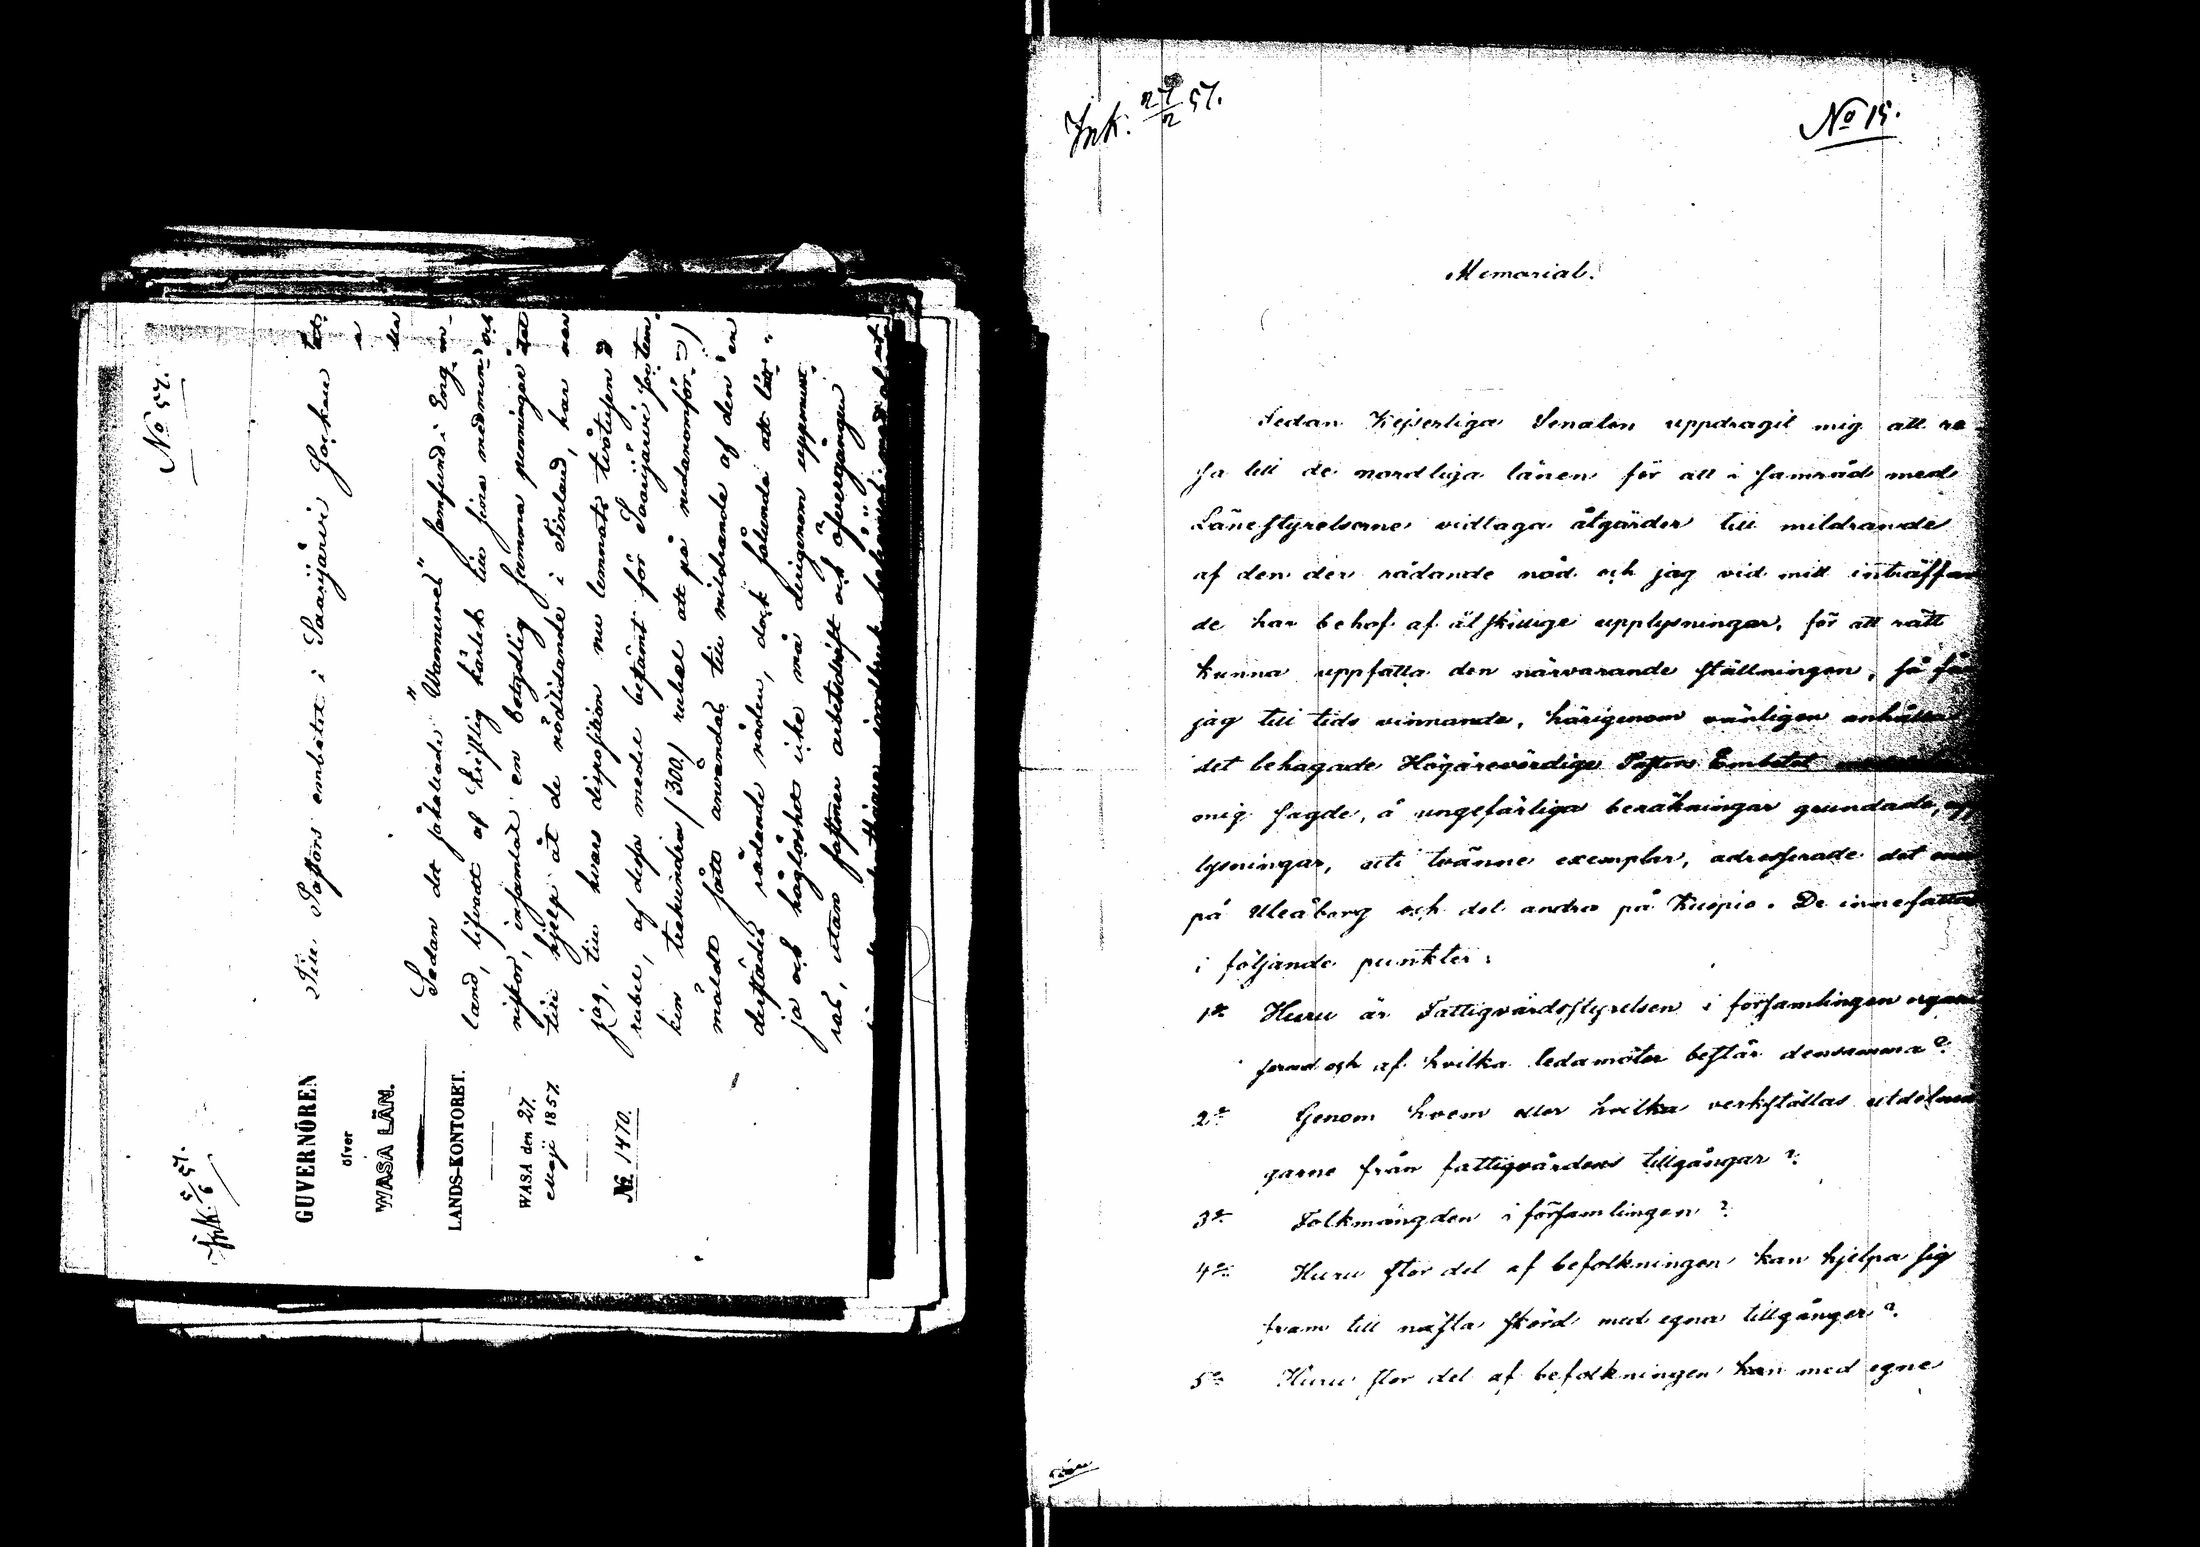 Ink. 5/6 57.
No 57.
GUVERNÖREN
öfver
WASA LÄN.
LANDS-KONTORET.
WASA den 27.
Maji 1857.
No. 1470.
Till Pastors embetet i Saarijärvi Socken
Sedan det såkallade "Wännernes" samfund i Eng-
land, lifvadt af kristlig kärlek till sina medmen-
niskor, insamlat en betydlig summa penningar
till hjelp åt de nödlidande i Finland, har
jag, till hvars disposition nu lemnats tvåtusen
rubel, af dessa medel bestämt för Saarijärvi socken
trehundra /300/ rubel att på nedananför-
mäldt sätt användas till mildrande af den
derstädes rådande nöden, dock sålunda att lätt-
ja och håglöshet icke må derigenom uppmunt-
ras, utan fastmer arbetsdrift och
Ink. 27/2 57.
No 15.
Memorial.
Sedan Kejserliga Senaten uppdragit mig att re-
sa till de nordliga länen för att i samråd med
Länestyrelserne vidtaga åtgärder till mildrande
af den der rådande nöd och jag vid mitt inträffan
de har behof af åtskillige upplysningar, för att rätt
kunna uppfatta den närvarande ställningen, så får
jag till tids vinnande, härigenom vänligen anhålla
det behagade Högärevördige Pastors Embetet
mig sagde, å ungefärliga beräkningar grundade, upp
lysningar, uti tvänne exemplar, adresserade det ena
på Uleåborg och det andra på Kuopio. De innefattas
i följande punkter:
1o Huru är Fattigvårdsstyrelsen i församlingen organi
serad och af hvilka ledamöter består densamma?
2o Genom hvem eller hvilka verkställas utdelnin
garne från fattigvårdens tillgångar?
3o Folkmängden i församlingen?
4o Huru stor del af befolkningen kan hjelpa sig
fram till nästa skörd med egna tillgångar?
5o Huru stor del af befolkningen kan med egne